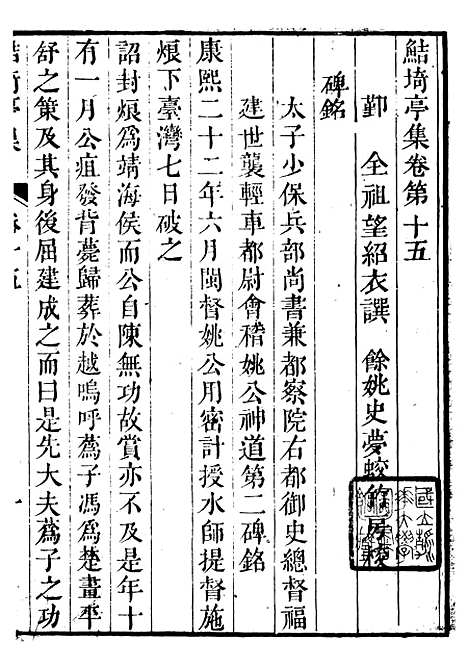 鮚埼亭集卷第十五
鄞　全祖望紹衣譔　餘姚史夢蛟竹房校
碑銘
太子少保兵部尚書兼都察院右都御史總督福
建世襲輕車都尉會稽姚公神道第二碑銘
康熙二十二年六月閩督姚公用密計授水師提督施
烺下臺灣七日破之
詔封烺爲靖海侯而公自陳無功故賞亦不及是年十
有一月公疽發背薨歸葬於越嗚呼蒍子馮爲楚畫平
舒之策及其身後屈建成之而曰是先大夫蒍子之功
鮚埼亭集　卷十五　一